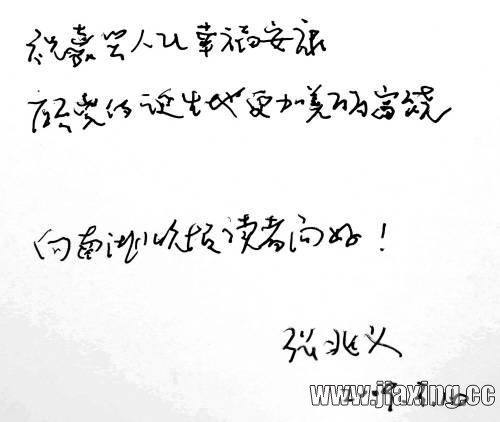 祝嘉兴人民幸福安康
愿党的诞生地更加美丽富饶
向南湖晚报读者问好！
张兆义
www.jiaxing.cc